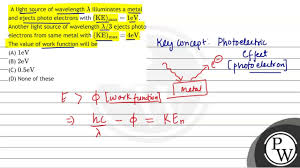 A light source of wavelength λ illuminates a metal
and ejects photo electrons with (KE)max = 1eV.
Another light source of wavelength λ/3 ejects photo
electrons from same metal with (KE)max = 4eV.
The value of work function will be
(A) 1eV
(B) 2eV
(C) 0.5eV
(D) None of these
Key concept Photoelectric
Effect
[photoelectron]
e⊖
metal
E > ϕ [work function]
⇒ hc/λ − ϕ = KEn